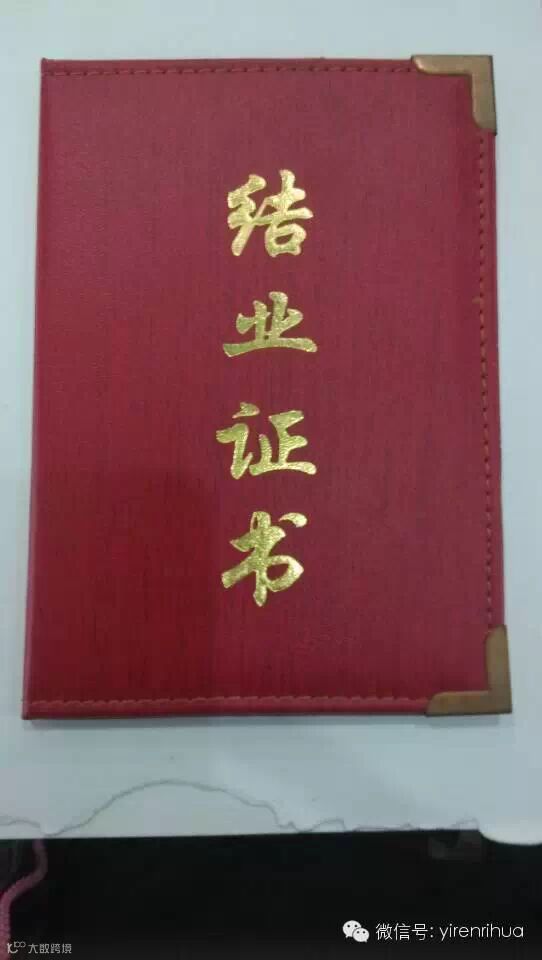 结业证书
微信号: yirenrihua
大数跨境